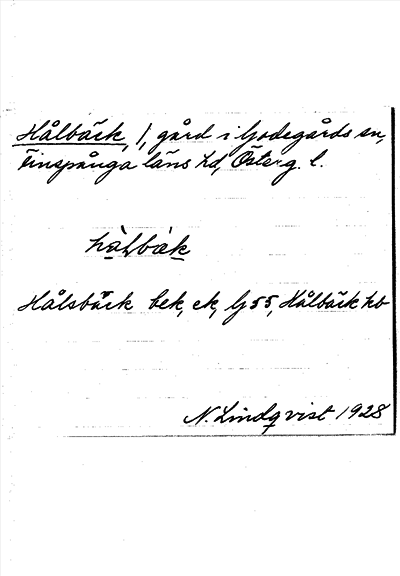 Hålbäck, 1, gård i Godegårds sn,
Finspånga läns hd, Österg. l.
hàlbàk
Hålsbäck bek, ek, lj 55, Hålbäck hb
N. Lindqvist 1928